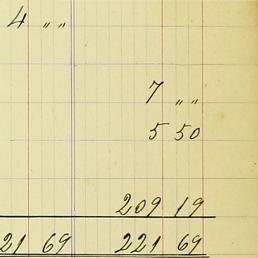 4 " "
7 " "
5 50
209 19
21 69 221 69